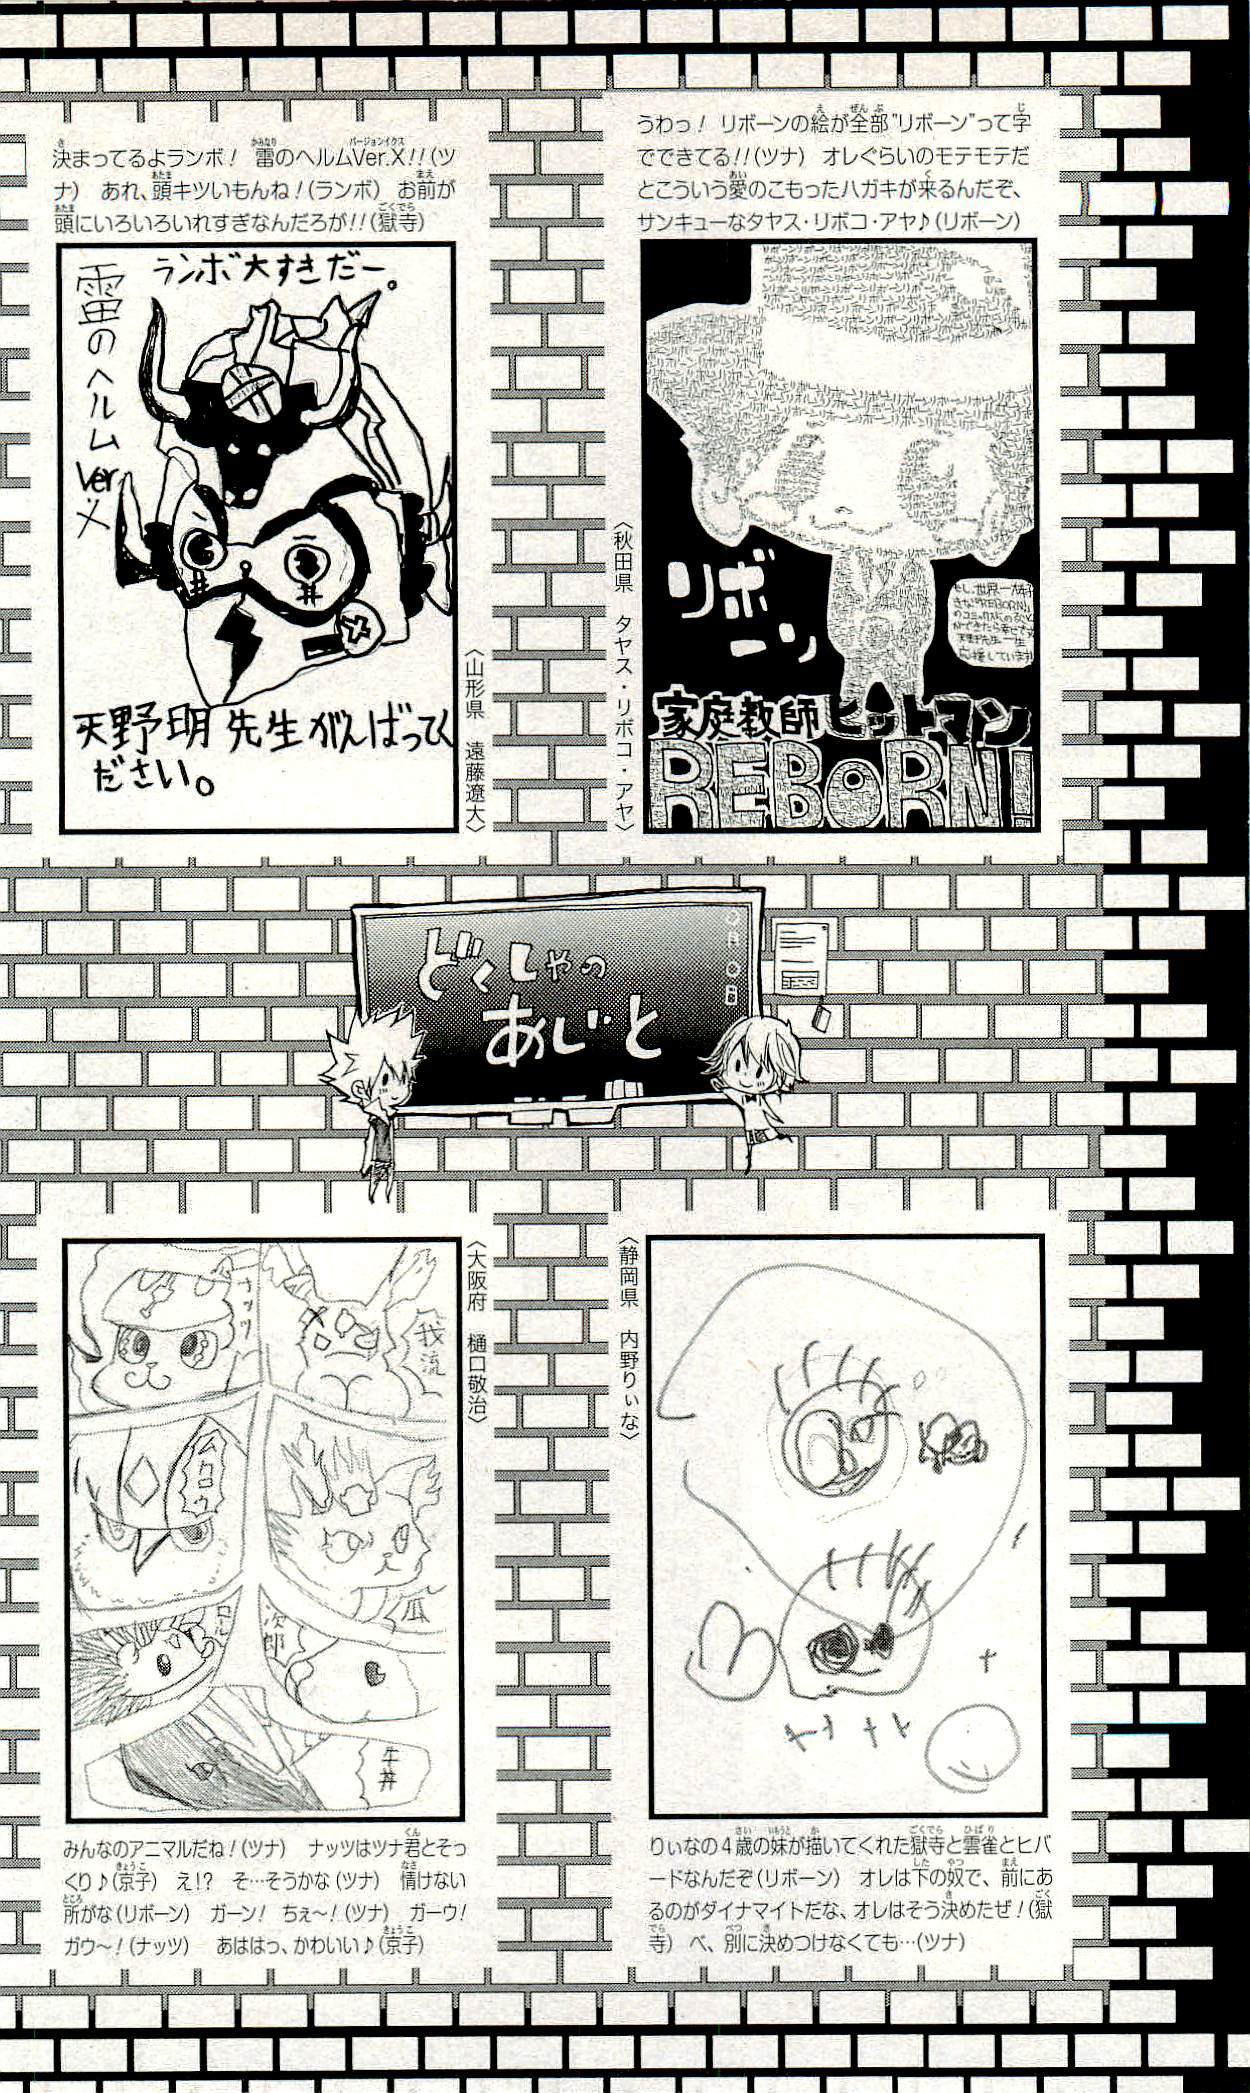 うわっ! リボーンの絵が全部"リボーン"って字
でできてる!!(ツナ) オレぐらいのモテモテだ
とこういう愛のこもったハガキが来るんだぞ、
サンキューなタヤス・リボコ・アヤ♪(リボーン)
リボーン
家庭教師ヒットマン
REBORN!
〈秋田県 タヤス・リボコ・アヤ〉
決まってるよランボ! 雷のヘルムVer.X!!(ツ
ナ) あれ、頭キツいもんね!(ランボ) お前が
頭にいろいろいれすぎなんだろが!!(獄寺)
ランボ大すきだー。
雷のヘルムVer.X
天野明先生がんばってく
ださい。
〈山形県 遠藤遼大〉
どくしゃの
あじと
〈静岡県 内野りぃな〉
りぃなの4歳の妹が描いてくれた獄寺と雲雀とヒバ
ードなんだぞ(リボーン) オレは下の奴で、前にあ
るのがダイナマイトだな、オレはそう決めたぜ!(獄
寺) べ、別に決めつけなくても…(ツナ)
〈大阪府 樋口敬治〉
ナッツ
我流
ムクロウ
瓜
ロール
次郎
牛丼
みんなのアニマルだね!(ツナ) ナッツはツナ君とそっ
くり♪(京子) え!? そ…そうかな(ツナ) 情けない
所がな(リボーン) ガーン! ちぇ〜!(ツナ) ガーウ!
ガウ〜!(ナッツ) あははっ、かわいい♪(京子)